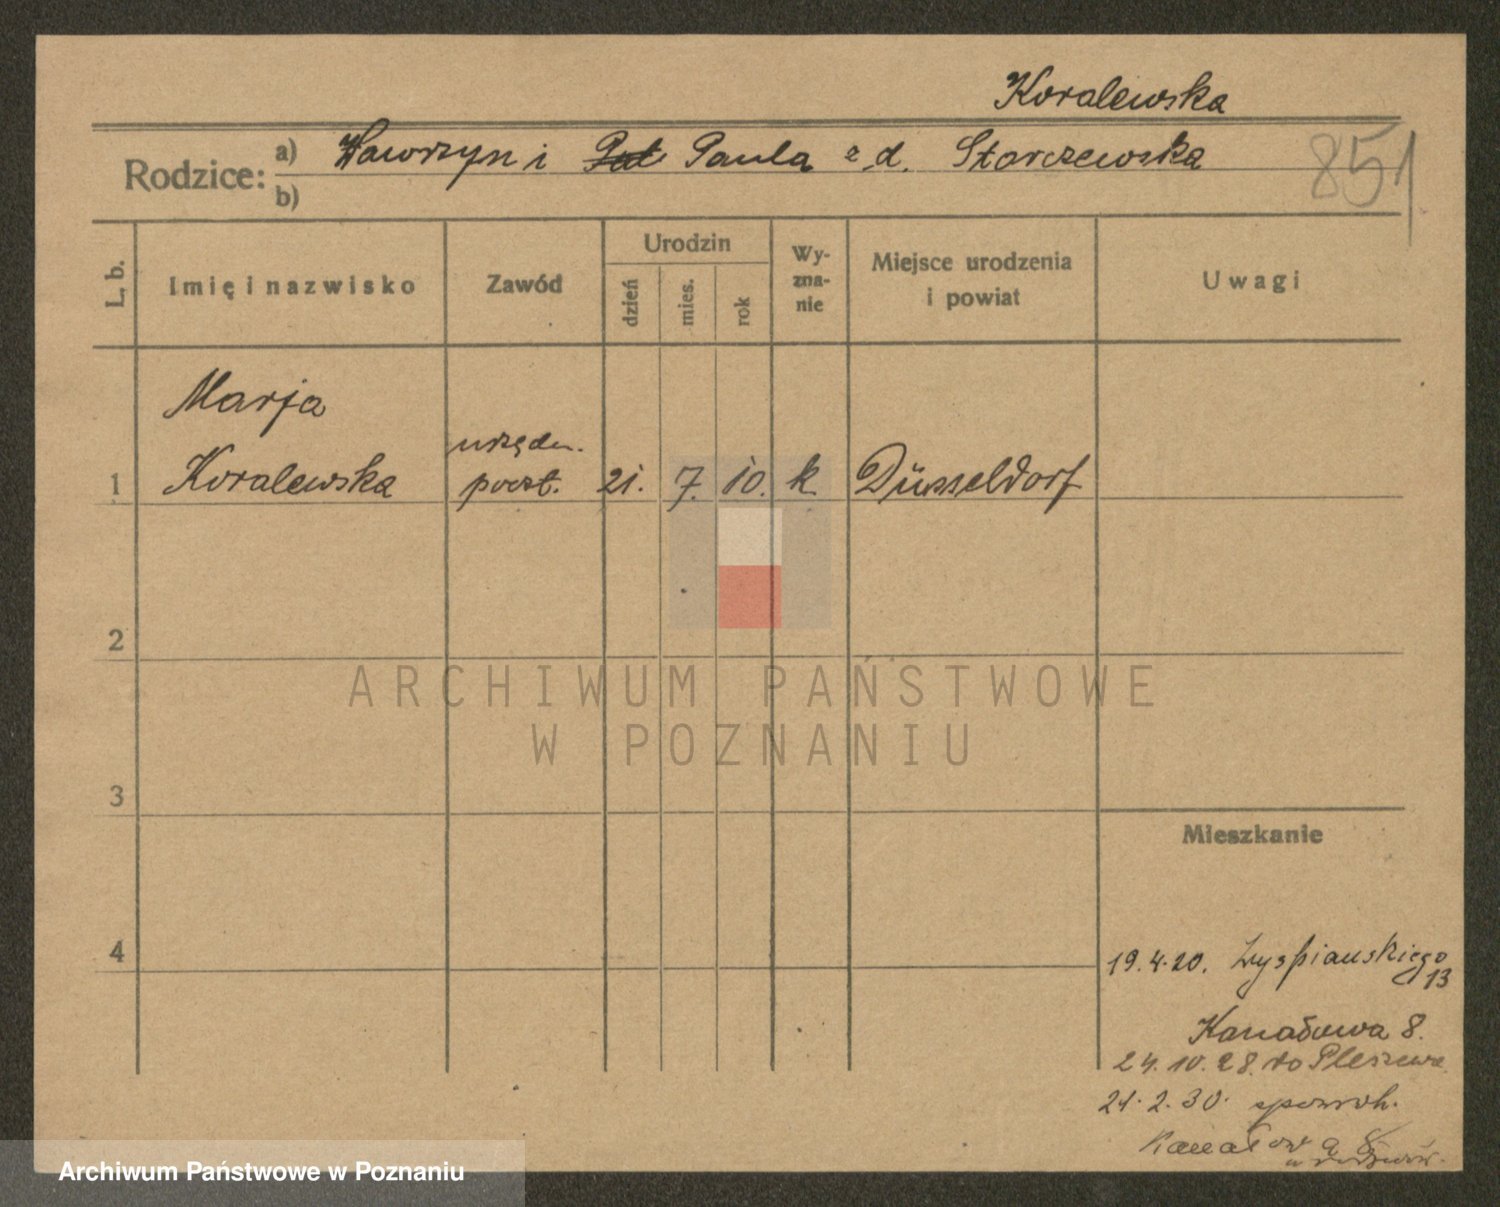 Koralewska
Rodzice: a) Wawrzyn i Paula z d. Starczewska
b)
851
L. b.
Imię i nazwisko
Zawód
Urodzin
dzień
mies.
rok
Wy-
zna-
nie
Miejsce urodzenia
i powiat
Uwagi
Marja
urzędn.
1 Koralewska poczt. 21. 7. 10. k Düsseldorf
2
ARCHIWUM PAŃSTWOWE
W POZNANIU
3
Mieszkanie
4
19.4.20. Wyspiańskiego
13
Kanałowa 8.
24.10.28. do Pleszewa
21.2.30.
Kanałowa 8
Archiwum Państwowe w Poznaniu